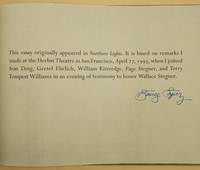 This essay originally appeared in Northern Lights. It is based on remarks I
made at the Herbst Theatre in San Francisco, April 27, 1995, when I joined
Ivan Doig, Gretel Ehrlich, William Kittredge, Page Stegner, and Terry
Tempest Williams in an evening of testimony to honor Wallace Stegner.